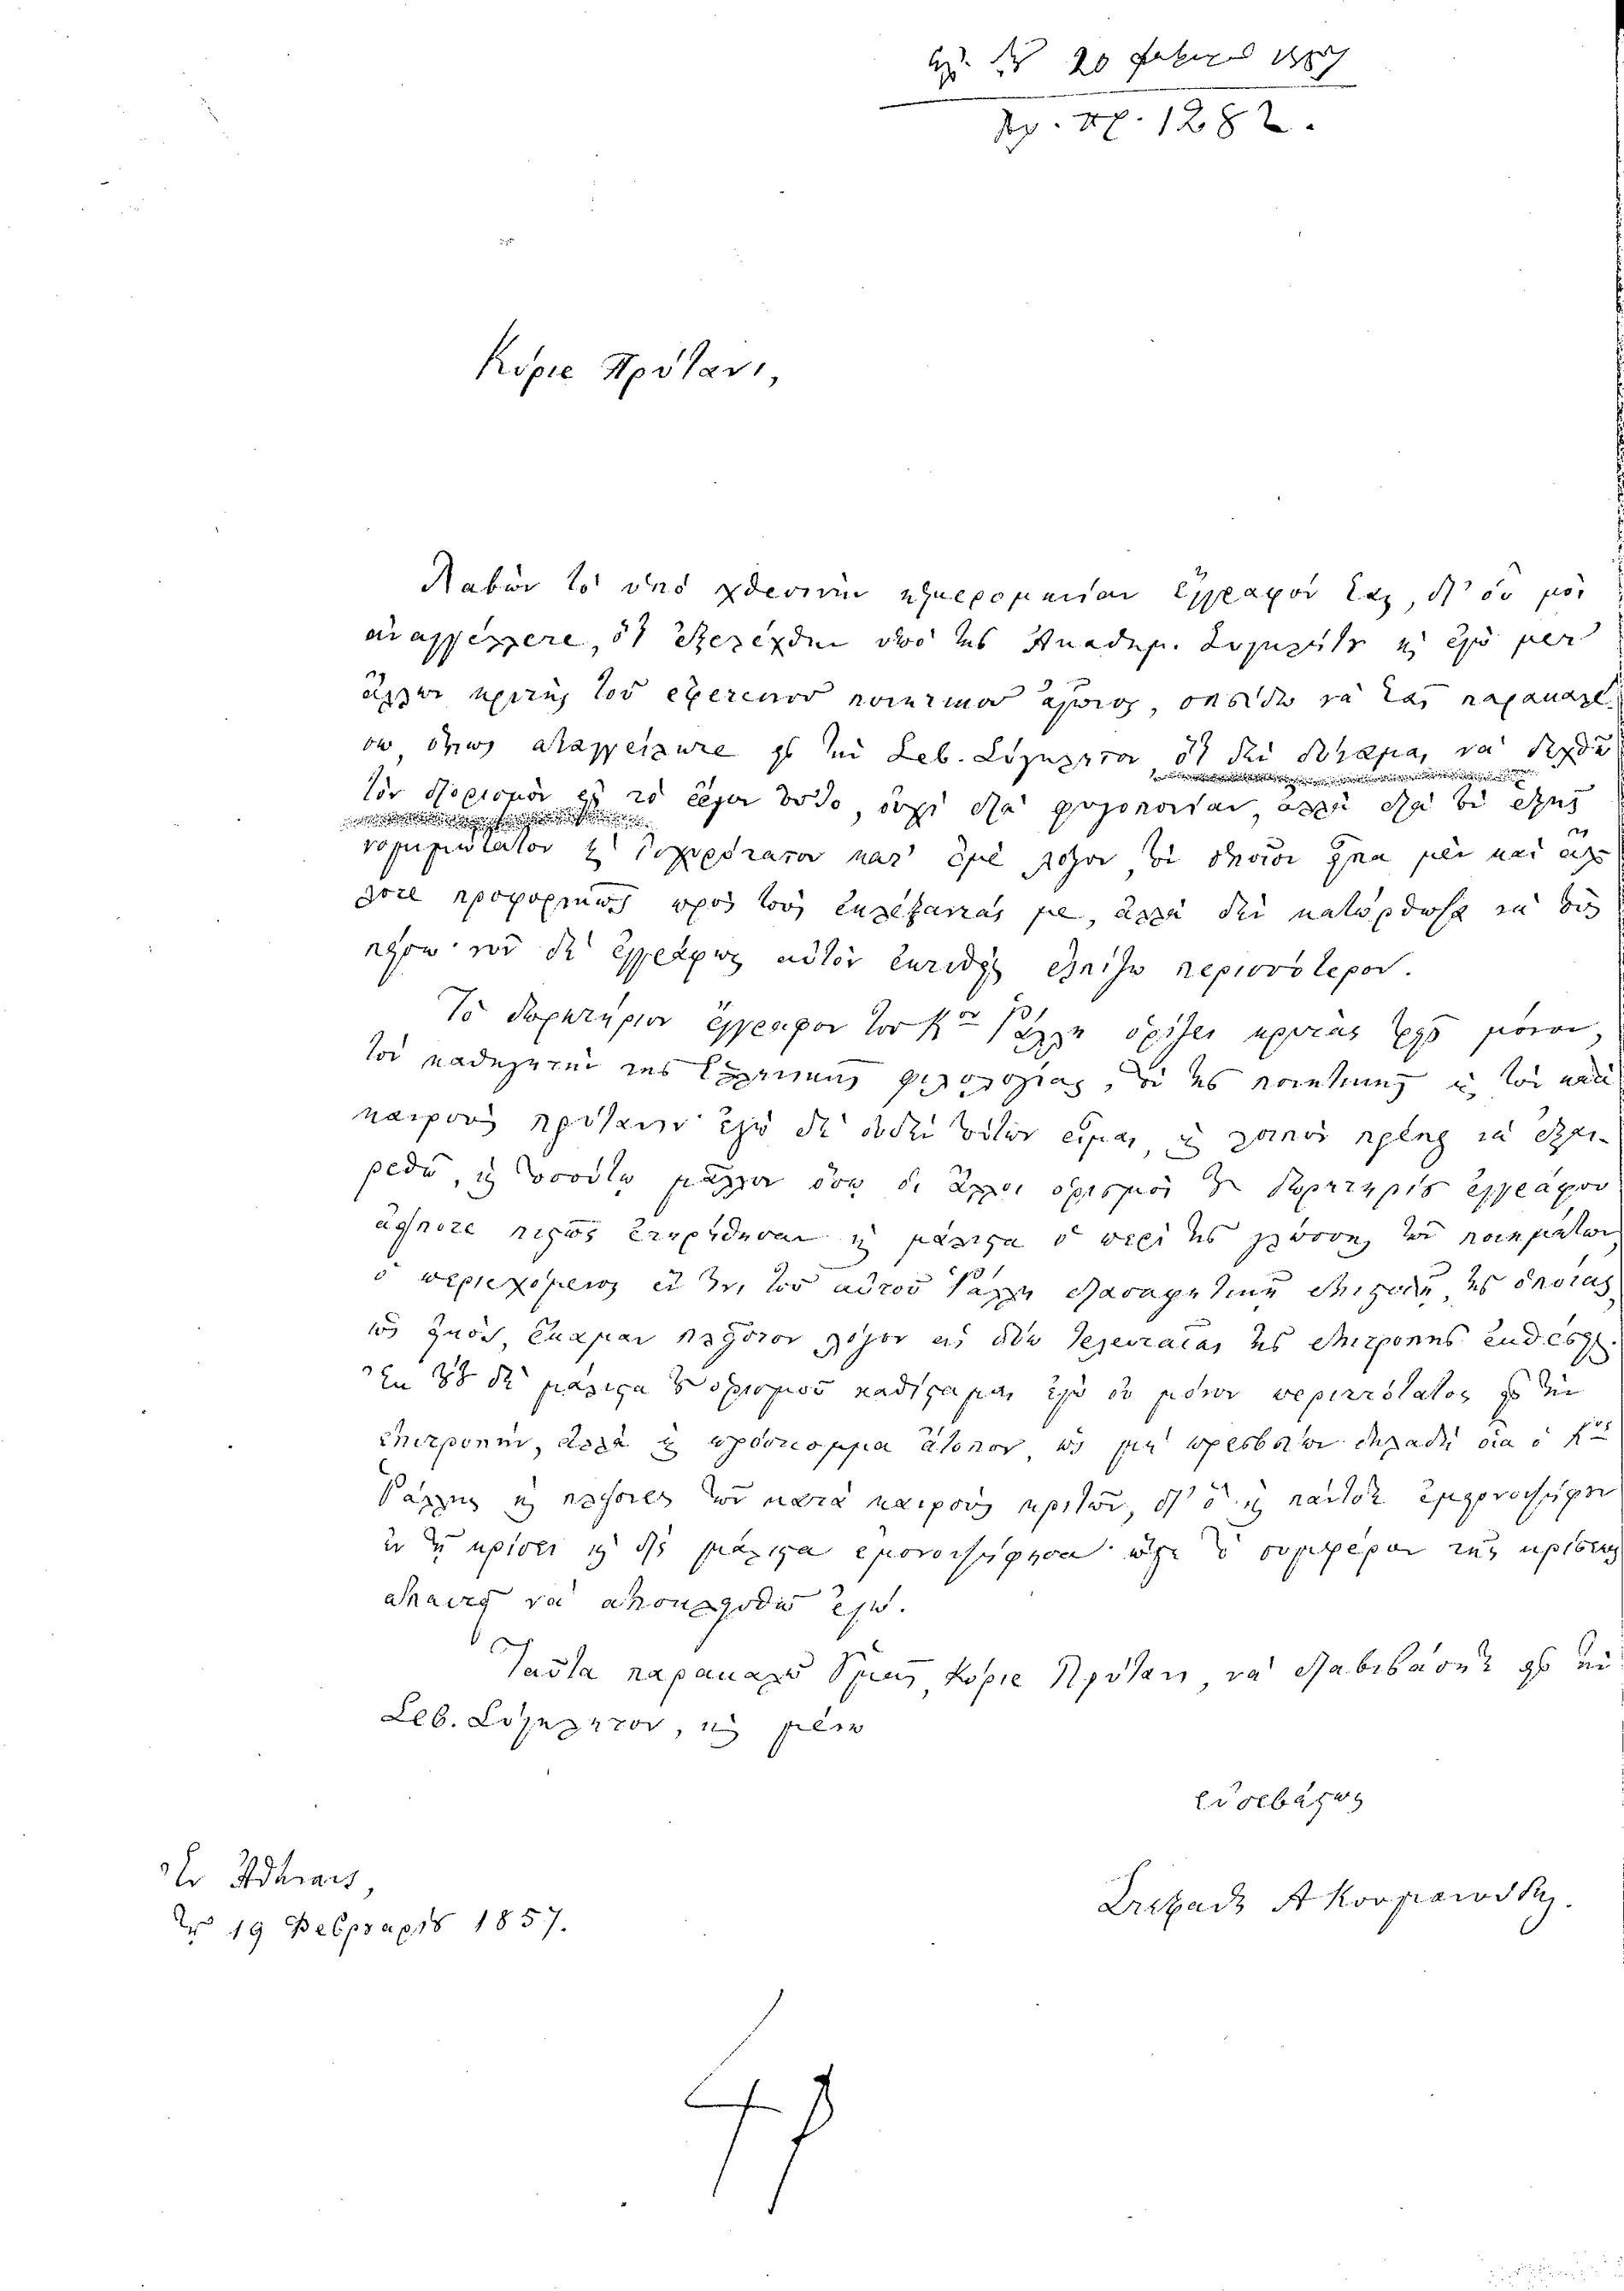 20 1857
Πρ. Αρ. 1282.
Κύριε Πρύτανι,
Λαβὼν τὸ ὑπὸ χθεσινὴν ἡμερομηνίαν ἔγγραφόν σας, δι' οὗ μοὶ
ἀναγγέλλετε, ὅτι ἐξελέχθην ὑπὸ τῆς Ἀκαδημ. Συγκλήτου καὶ ἐγὼ μετ'
ἄλλων κριτὴς τοῦ ἐφετεινοῦ ποιητικοῦ ἀγῶνος, σπεύδω νὰ σᾶς παρακαλέ-
σω, ὅπως ἀναγγείλητε εἰς τὴν Σεβ. Σύγκλητον, ὅτι δὲν δύναμαι νὰ δεχθῶ
τὸν διορισμὸν εἰς τὸ ἔργον τοῦτο, οὐχὶ διὰ φυγοπονίαν, ἀλλὰ διὰ τὸν ἑξῆς
νομιμώτατον καὶ κατ' ἐμὲ λόγον, τὸν ὁποῖον εἶπα μὲν καὶ ἄλ-
λοτε προφορικῶς πρὸς τοὺς ἐκλέξαντάς με, ἀλλὰ δὲν κατώρθωσα νὰ τοὺς
πείσω· νῦν δὲ ἐγγράφως αὐτὸν ἐκτιθεὶς ἐλπίζω περισσότερον.
Τὸ δωρητήριον ἔγγραφον τοῦ Κου Ῥάλλη ὁρίζει κριτὰς μόνον
τοὺς καθηγητὰς τῆς Ἑλληνικῆς φιλολογίας, τῆς ποιητικῆς καὶ τὸν κατὰ
καιροὺς πρύτανιν· ἐγὼ δὲ οὐδὲν τούτων εἶμαι, καὶ λοιπὸν πρέπει νὰ ἐξαι-
ρεθῶ, καὶ τοσούτῳ μᾶλλον ὅσῳ οἱ ἄλλοι ὁρισμοὶ τοῦ δωρητηρίου ἐγγράφου
ἄχρι τοῦδε πιστῶς ἐτηρήθησαν καὶ μάλιστα ὁ περὶ τῆς γλώσσης τῶν ποιημάτων
ὁ περιεχόμενος ἐν τῇ τοῦ αὐτοῦ Ῥάλλη ἐπιστολῇ, τῆς ὁποίας,
ὡς γνωστόν, ἔκαμαν πλεῖστον λόγον εἰς τὰς τελευταίας τῆς ἐπιτροπῆς ἐκθέσεις.
Ἐκ τοῦ δὲ μάλιστα τοῦ ὁρισμοῦ καθίσταμαι ἐγὼ οὐ μόνον περιττότατος εἰς τὴν
ἐπιτροπήν, ἀλλὰ καὶ πρόσκομμα ἄτοπον, ὡς μὴ πρεσβεύων δηλαδὴ ὅσα ὁ Κος
Ῥάλλης καὶ πλεῖστοι τῶν κατὰ καιροὺς κριτῶν, δι' ὃ καὶ πάντοτε ἐμειονοψήφησα
ἐν τῇ κρίσει καὶ δὶς μάλιστα ἐμονοψήφησα· ὥστε τὸ συμφέρον τῆς κρίσεως
ἀπαιτεῖ νὰ ἀποκλεισθῶ ἐγώ.
Ταῦτα παρακαλῶ ὑμᾶς, Κύριε Πρύτανι, νὰ διαβιβάσητε εἰς τὴν
Σεβ. Σύγκλητον, καὶ μένω
εὐσεβάστως
Στέφανος Α Κουμανούδης.
Ἐν Ἀθήναις,
τῇ 19 Φεβρουαρίου 1857.
47